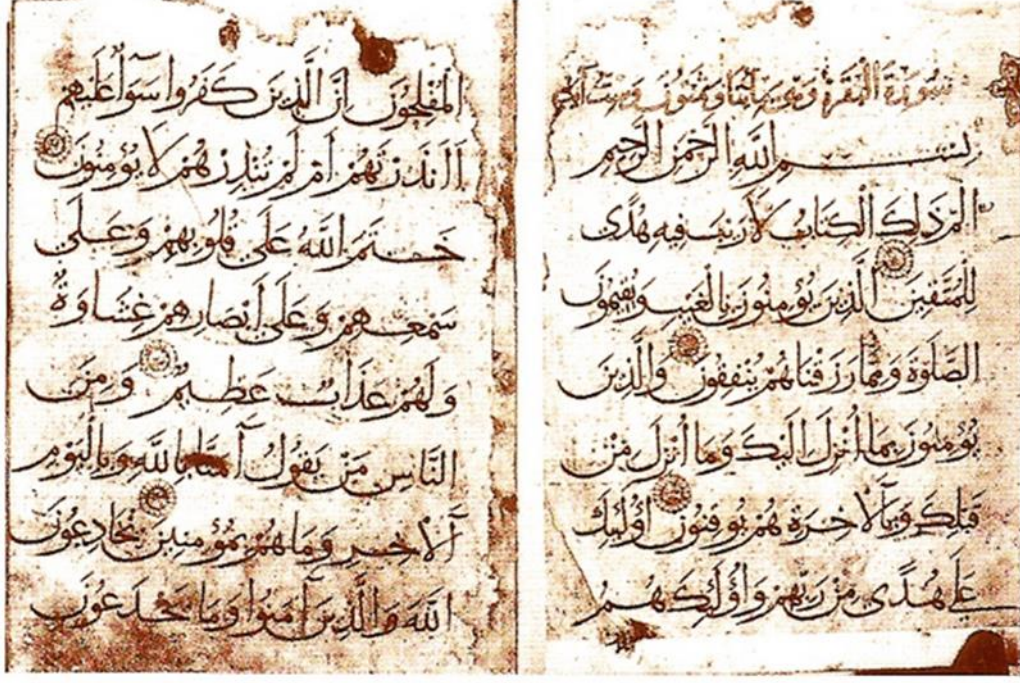 سُورَةُ الْبَقَرَةِ وَهِيَ مِايَتَا وَثَمَنُونَ وَسِتُّ آيَة
بِسْمِ اللَّهِ الرَّحْمَنِ الرَّحِيمِ
الَمّ ذَلِكَ الْكِتَابُ لَا رَيْبَ فِيهِ هُدًى
لِلْمُتَّقِينَ الَّذِينَ يُؤْمِنُونَ بِالْغَيْبِ وَيُقِيمُونَ
الصَّلَوةَ وَمِمَّا رَزَقْنَاهُمْ يُنْفِقُونَ وَالَّذِينَ
يُؤْمِنُونَ بِمَا أُنْزِلَ إِلَيْكَ وَمَا أُنْزِلَ مِنْ
قَبْلِكَ وَبِالْآخِرَةِ هُمْ يُوقِنُونَ أُولَئِكَ
عَلَى هُدًى مِنْ رَبِّهِمْ وَأُولَئِكَ هُمُ
الْمُفْلِحُونَ إِنَّ الَّذِينَ كَفَرُوا سَوَآءٌ عَلَيْهِمْ
أَأَنْذَرْتَهُمْ أَمْ لَمْ تُنْذِرْهُمْ لَا يُؤْمِنُونَ
خَتَمَ اللَّهُ عَلَى قُلُوبِهِمْ وَعَلَى
سَمْعِهِمْ وَعَلَى أَبْصَارِهِمْ غِشَاوَةٌ
وَلَهُمْ عَذَابٌ عَظِيمٌ وَمِنَ
النَّاسِ مَنْ يَقُولُ آمَنَّا بِاللَّهِ وَبِالْيَوْمِ
الْآخِرِ وَمَا هُمْ بِمُؤْمِنِينَ يُخَادِعُونَ
اللَّهَ وَالَّذِينَ آمَنُوا وَمَا يَخْدَعُونَ